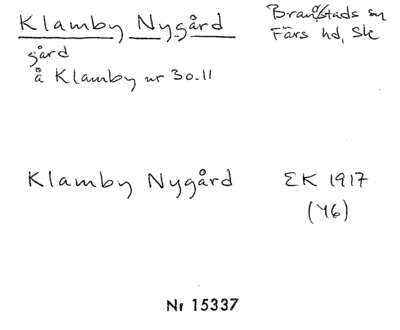 Klamby Nygård
Branstads sn
Färs hd, Sk
gård
å Klamby nr 30.11
Klamby Nygård EK 1917
(Y6)
Nr 15337